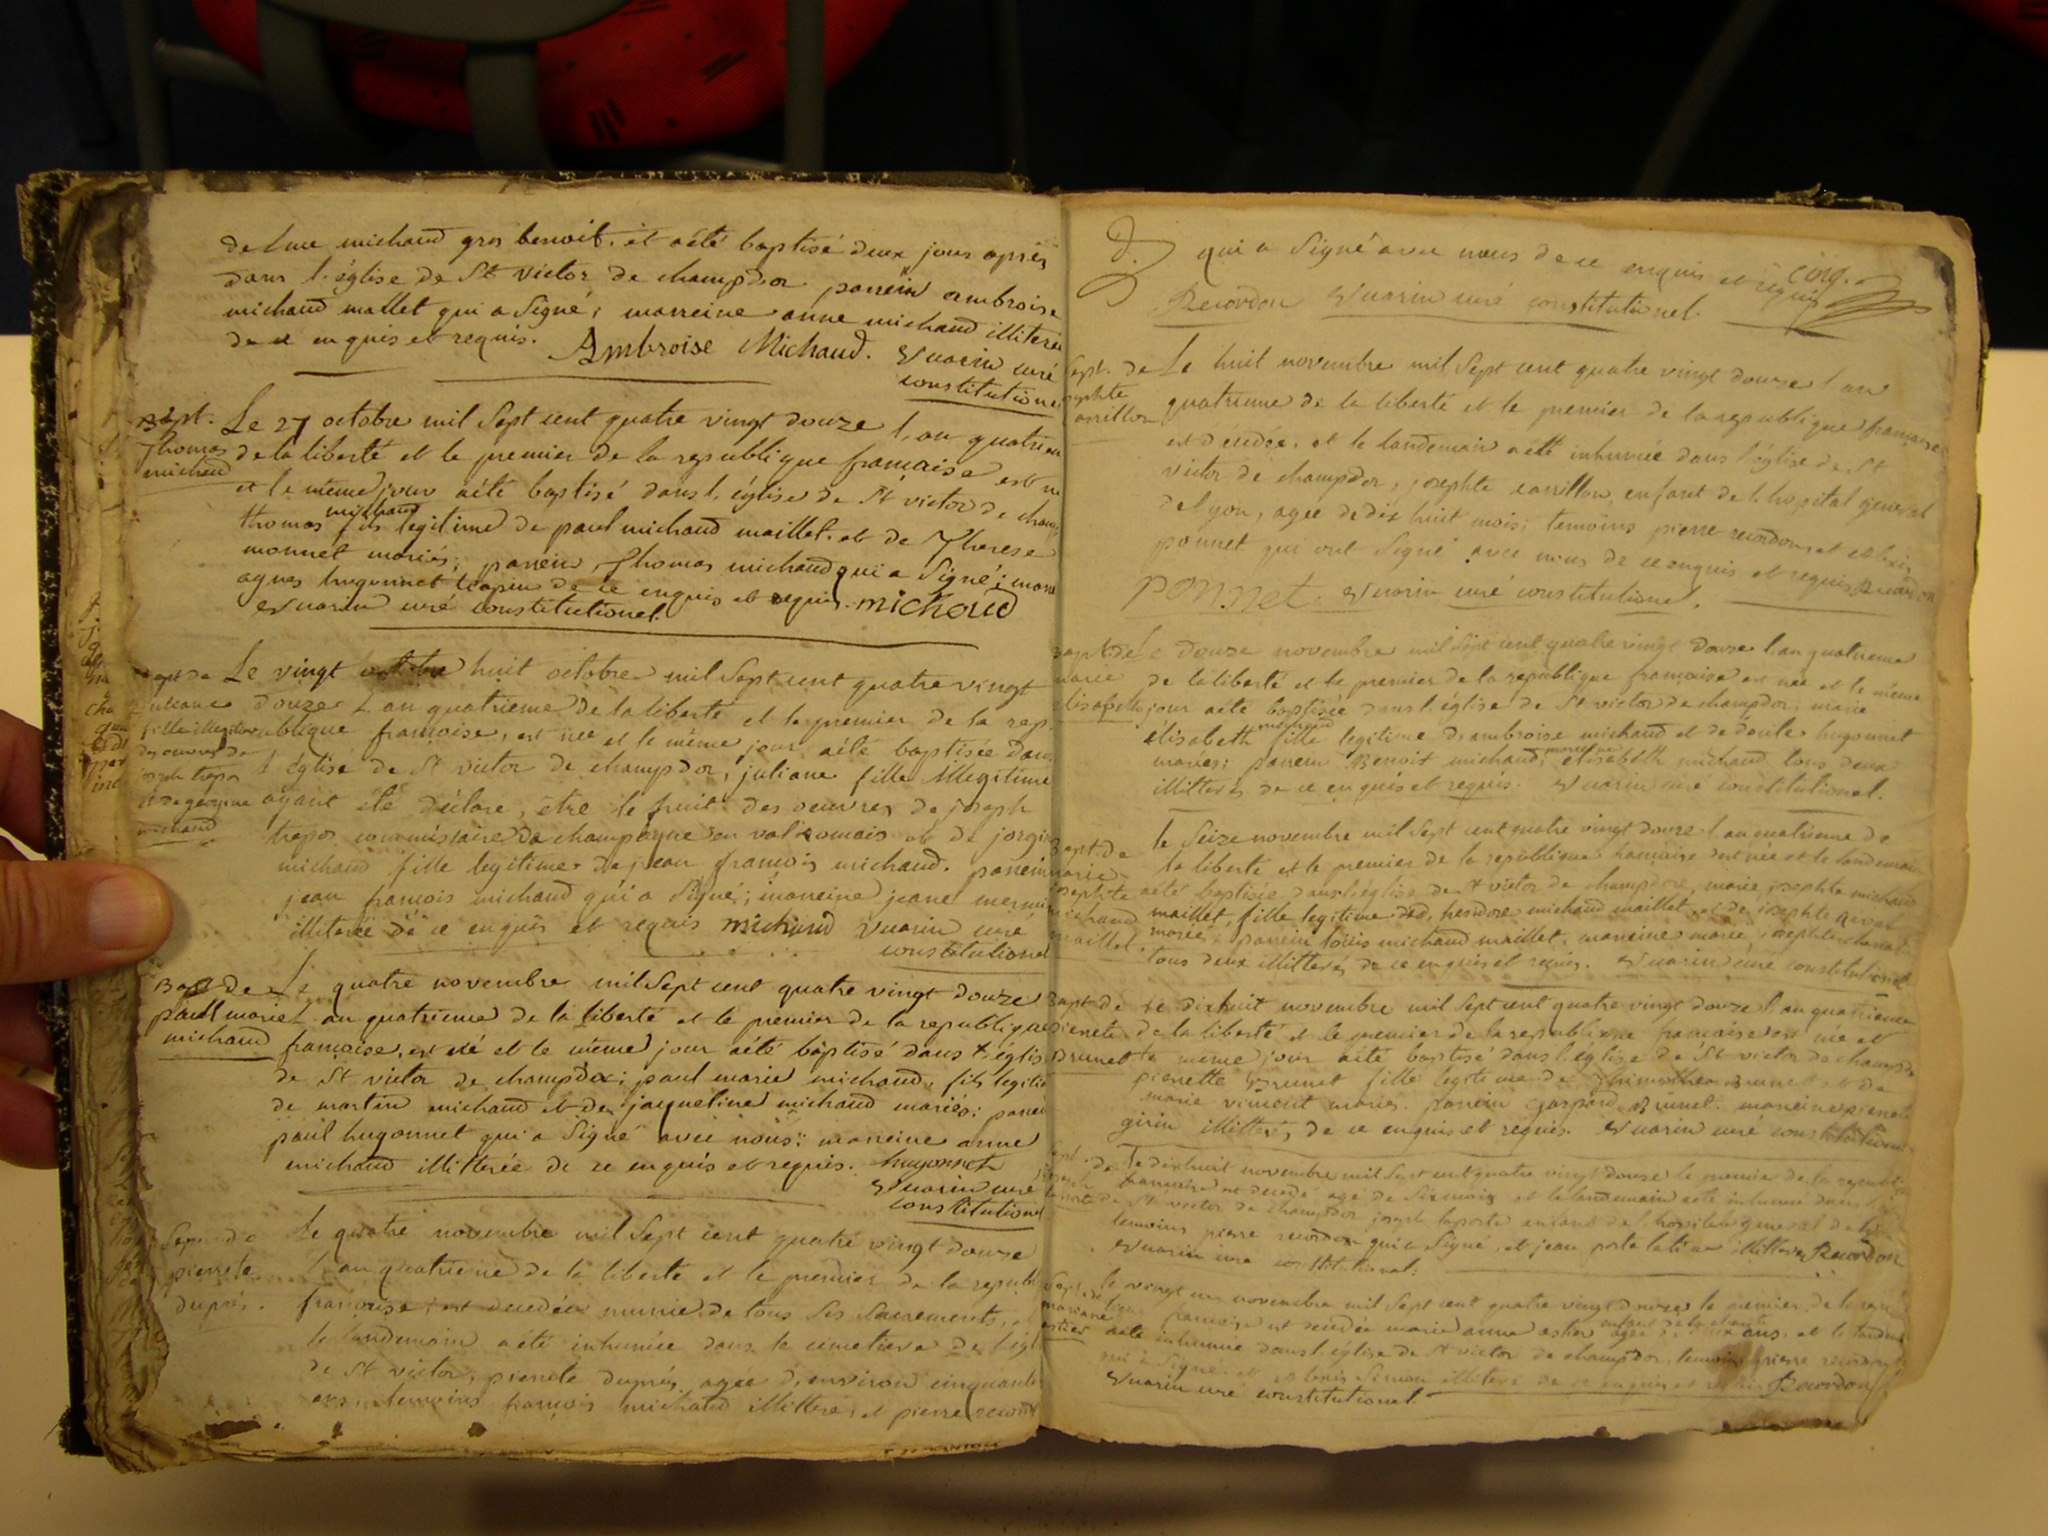 de lme michaud gros benoit. et aété baptisé deux jours après
dans l'église de St victor de champdor parrein ambroise
michaud mallet qui a signé; marreine anne michaud illiterée
de ce enquis et requis. Ambroise Michaud. vuarin curé
constitutionel
Bapt. Le 27 octobre mil sept cent quatre vingt douze l'an quatrieme
Thomas de la liberté et le premier de la republique francaise est né
michaud et le même jour aété baptisé dans l'église de St victor de champ
michaud
thomas fils legitime de paul michaud maillet. et de Therese
monnet mariés; parrein Thomas michaud qui a signé; marr
agnes hugonnet de ce enquis et requis. michaud
vuarin curé constitutionel.
Bapt de Le vingt huit octobre mil sept cent quatre vingt
juleane douze l'an quatrieme de la liberté et le premier de la rep-
fille illegitime ublique françoise, est née et le même jour aété baptisée dans
des oeuvres de l'église de St victor de champdor, juliane fille illegitime
joseph trepos ayant été déclaré, être le fruit des oeuvres de joseph
et de georgine trepos commissaire de champagne en valromais et de jorgine
michaud michaud fille legitime de jean françois michaud. parrein
jean françois michaud qui a signé; marreine jeane mermi
illiterée de ce enquis et requis michaud vuarin curé
constitutionel
Bapt de Le quatre novembre mil sept cent quatre vingt douze
paul marie l'an quatrieme de la liberté et le premier de la republique
michaud françoise, est né et le même jour aété baptisé dans l'église
de St victor de champdor; paul marie michaud, fils legitime
de martin michaud et de jaqueline michaud mariés; parrein
paul hugonnet qui a signé avec nous; marreine anne
michaud illitterée de ce enquis et requis. hugonnet
vuarin curé
constitutionel
Sepul. de Le quatre novembre mil sept cent quatre vingt douze
pierrete l'an quatrieme de la liberté et le premier de la republ
duprés. françoise, est decedée munie de tous ses sacrements, et
le landemain aété inhumée dans le cemetiere de l'égl
de St victor, pierrete duprés agée d'environ cinquante
ans, temoins françois michaud illitteré, et pierre recordon
d. qui a signé avec nous de ce enquis et requis cinq.
Recordon vuarin curé constitutionel.
Sept. de Le huit novembre mil sept cent quatre vingt douze l'an
josephte quatrieme de la liberté et le premier de la republique française
carrillon est décédée, et le landemain aété inhumée dans l'église de St
victor de champdor, josephte carrillon, enfant de l'hopital general
de lyon, agée de dix huit mois; temoins pierre recordon, et
ponnet qui ont signé avec nous de ce enquis et requis Recordon
PONNET. vuarin curé constitutionel.
Bapt. de Le douze novembre mil sept cent quatre vingt douze l'an quatrieme
marie de la liberté et le premier de la republique françoise est née et le même
elisabeth jour aété baptisée dans l'église de St victor de champdor, marie
michaud
élisabeth fille legitime d'ambroise michaud et de hugonnet
mariés; parrein Benoit michaud, marreine elisabeth michaud tous deux
illitterés de ce enquis et requis. vuarin curé constitutionel.
Bapt. de le seize novembre mil sept cent quatre vingt douze l'an quatrieme de
marie la liberté et le premier de la republique françoise est née et le landemain
josephte aété baptisée dans l'église de St victor de champdor, marie josephte michaud
michaud maillet, fille legitime de michaud maillet et de josephte
maillet. mariés. parrein louis michaud maillet. marreine marie josephte
tous deux illitterés de ce enquis et requis. vuarin curé constitutionel
Bapt de le dix huit novembre mil sept cent quatre vingt douze l'an quatrieme
pierrete de la liberté et le premier de la republique françoise est née et
Brunet le même jour aété baptisé dans l'église de St victor de champdor
pierrette Brunet fille legitime de Thimothée Brunet et de
marie vincent mariés. parrein gaspard Brunet. marreine pierrete
girin illitterés de ce enquis et requis. vuarin curé constitutionel
Sept. de Le dix huit novembre mil sept cent quatre vingt douze le premier de la republique
joseph française est decedé agé de six mois et le landemain aété inhumé dans l'église
laporte de St victor de champdor joseph laporte enfant de l'hopital general de lyon
temoins pierre recordon qui a signé, et jean illitteré Recordon
vuarin curé constitutionel.
Sept. de le vingt un novembre mil sept cent quatre vingt douze le premier de la rep
mariane françoise est decedée marie anne agée de ans, et le landemain
aété inhumée dans l'eglise de St victor de champdor, temoins pierre recordon
qui a signé et louis simon illitteré de ce enquis et requis Recordon
vuarin curé constitutionel.